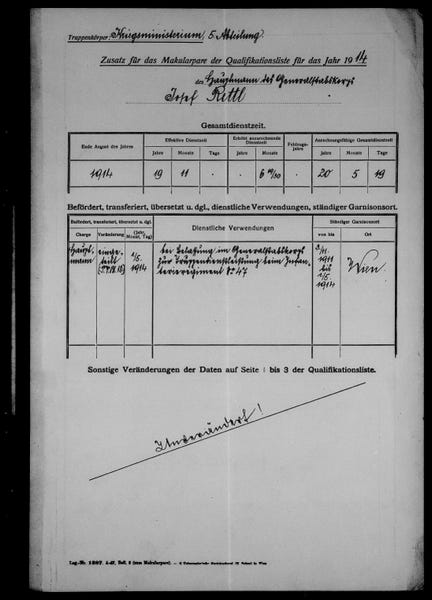 Truppenkörper: Kriegsministerium, 5. Abteilung.
Zusatz für das Makulare der Qualifikationsliste für das Jahr 1914
des Hauptmann des Generalstabskorps
Josef Rettl
Gesamtdienstzeit.
Ende August des Jahres
Effektive Dienstzeit
Erhöht anzurechnende Dienstzeit
Feldzugsjahre
Anrechnungsfähige Gesamtdienstzeit
Jahre Monate Tage Jahre Monate Jahre Monate Tage
1914 19 11 . . 6 19/30 . 20 5 19
Befördert, transferiert, übersetzt u. dgl., dienstliche Verwendungen, ständiger Garnisonsort.
Befördert, transferiert, übersetzt u. dgl.
Dienstliche Verwendungen
Ständiger Garnisonsort
Charge Veränderung (Jahr, Monat, Tag)
von bis Ort
Hauptmann
1/5. 1914
bei Belassung im Generalstabskorps
zur Truppendienstleistung beim Infan-
terieregiment Nr 47
1911
bis
1/5.
1914
Wien
Sonstige Veränderungen der Daten auf Seite 1 bis 3 der Qualifikationsliste.
Unverändert!
Lag.-Nr. 1287